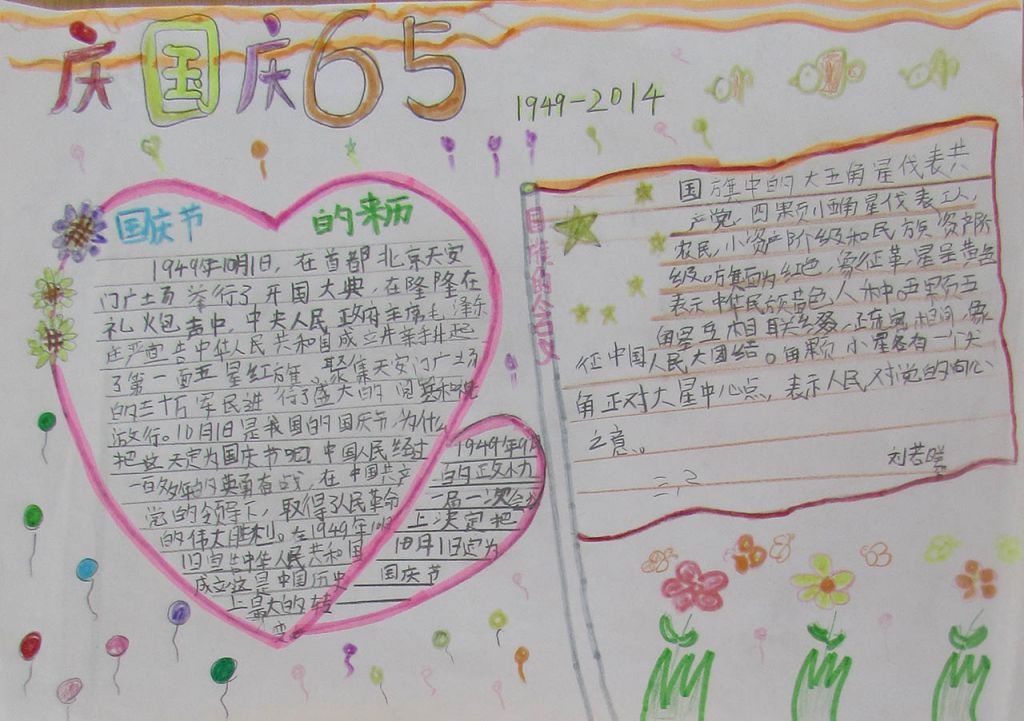 庆国庆65
1949-2014
国庆节 的来历
1949年10月1日,在首都北京天安
门广场举行了开国大典,在隆隆在
礼火包声中,中央人民政府主席毛泽东
庄严宣告中华人民共和国成立并亲手升起
了第一面五星红旗。聚集天安门广场
的三十万军民进行了盛大的阅
游行。10月1日是我国的国庆节,为什么
把这天定为国庆节呢?中国人民经过
一百多年的英勇奋战,在中国共产
党的领导下,取得了人民革命
的伟大胜利。在1949年10月
1日宣告中华人民共和国
成立这是中国历史
上最大的转
变
1949年9月
的政
一届一次会
上决定把
10月1日定为
国庆节
国旗的含义
国旗中的大五角星代表共
产党,四颗小五角星代表工人,
农民,小资产阶级和民族资产阶
级。旗面为红色,象征革,星呈黄色
表示中华民族黄色人种。五颗五
角星互相联,象
征中国人民大团结。每颗小星各有一个尖
角正对大星中心点,表示人民对党的向心
之意。
刘若
三.2